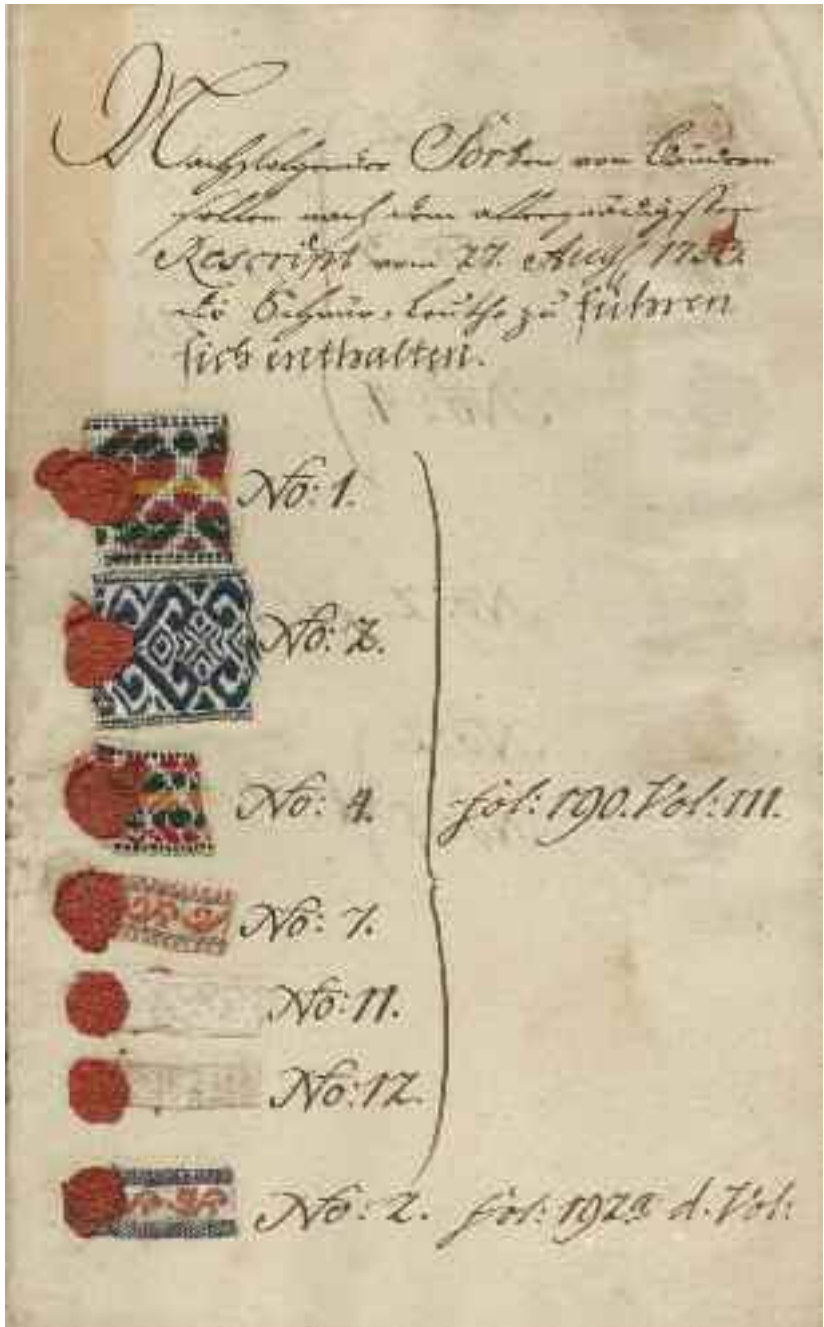 Nachfolgender Sorten von Bändern
sollen nach dem allergnädigsten
Rescript vom 27. Aug.
die Schnur-Leuthe zu führen
sich enthalten.
No: 1.
No: 2.
No: 4. fol: 190. Vol: III.
No: 7.
No: 11.
No: 12.
No: 2. fol: 192a d. Vol: